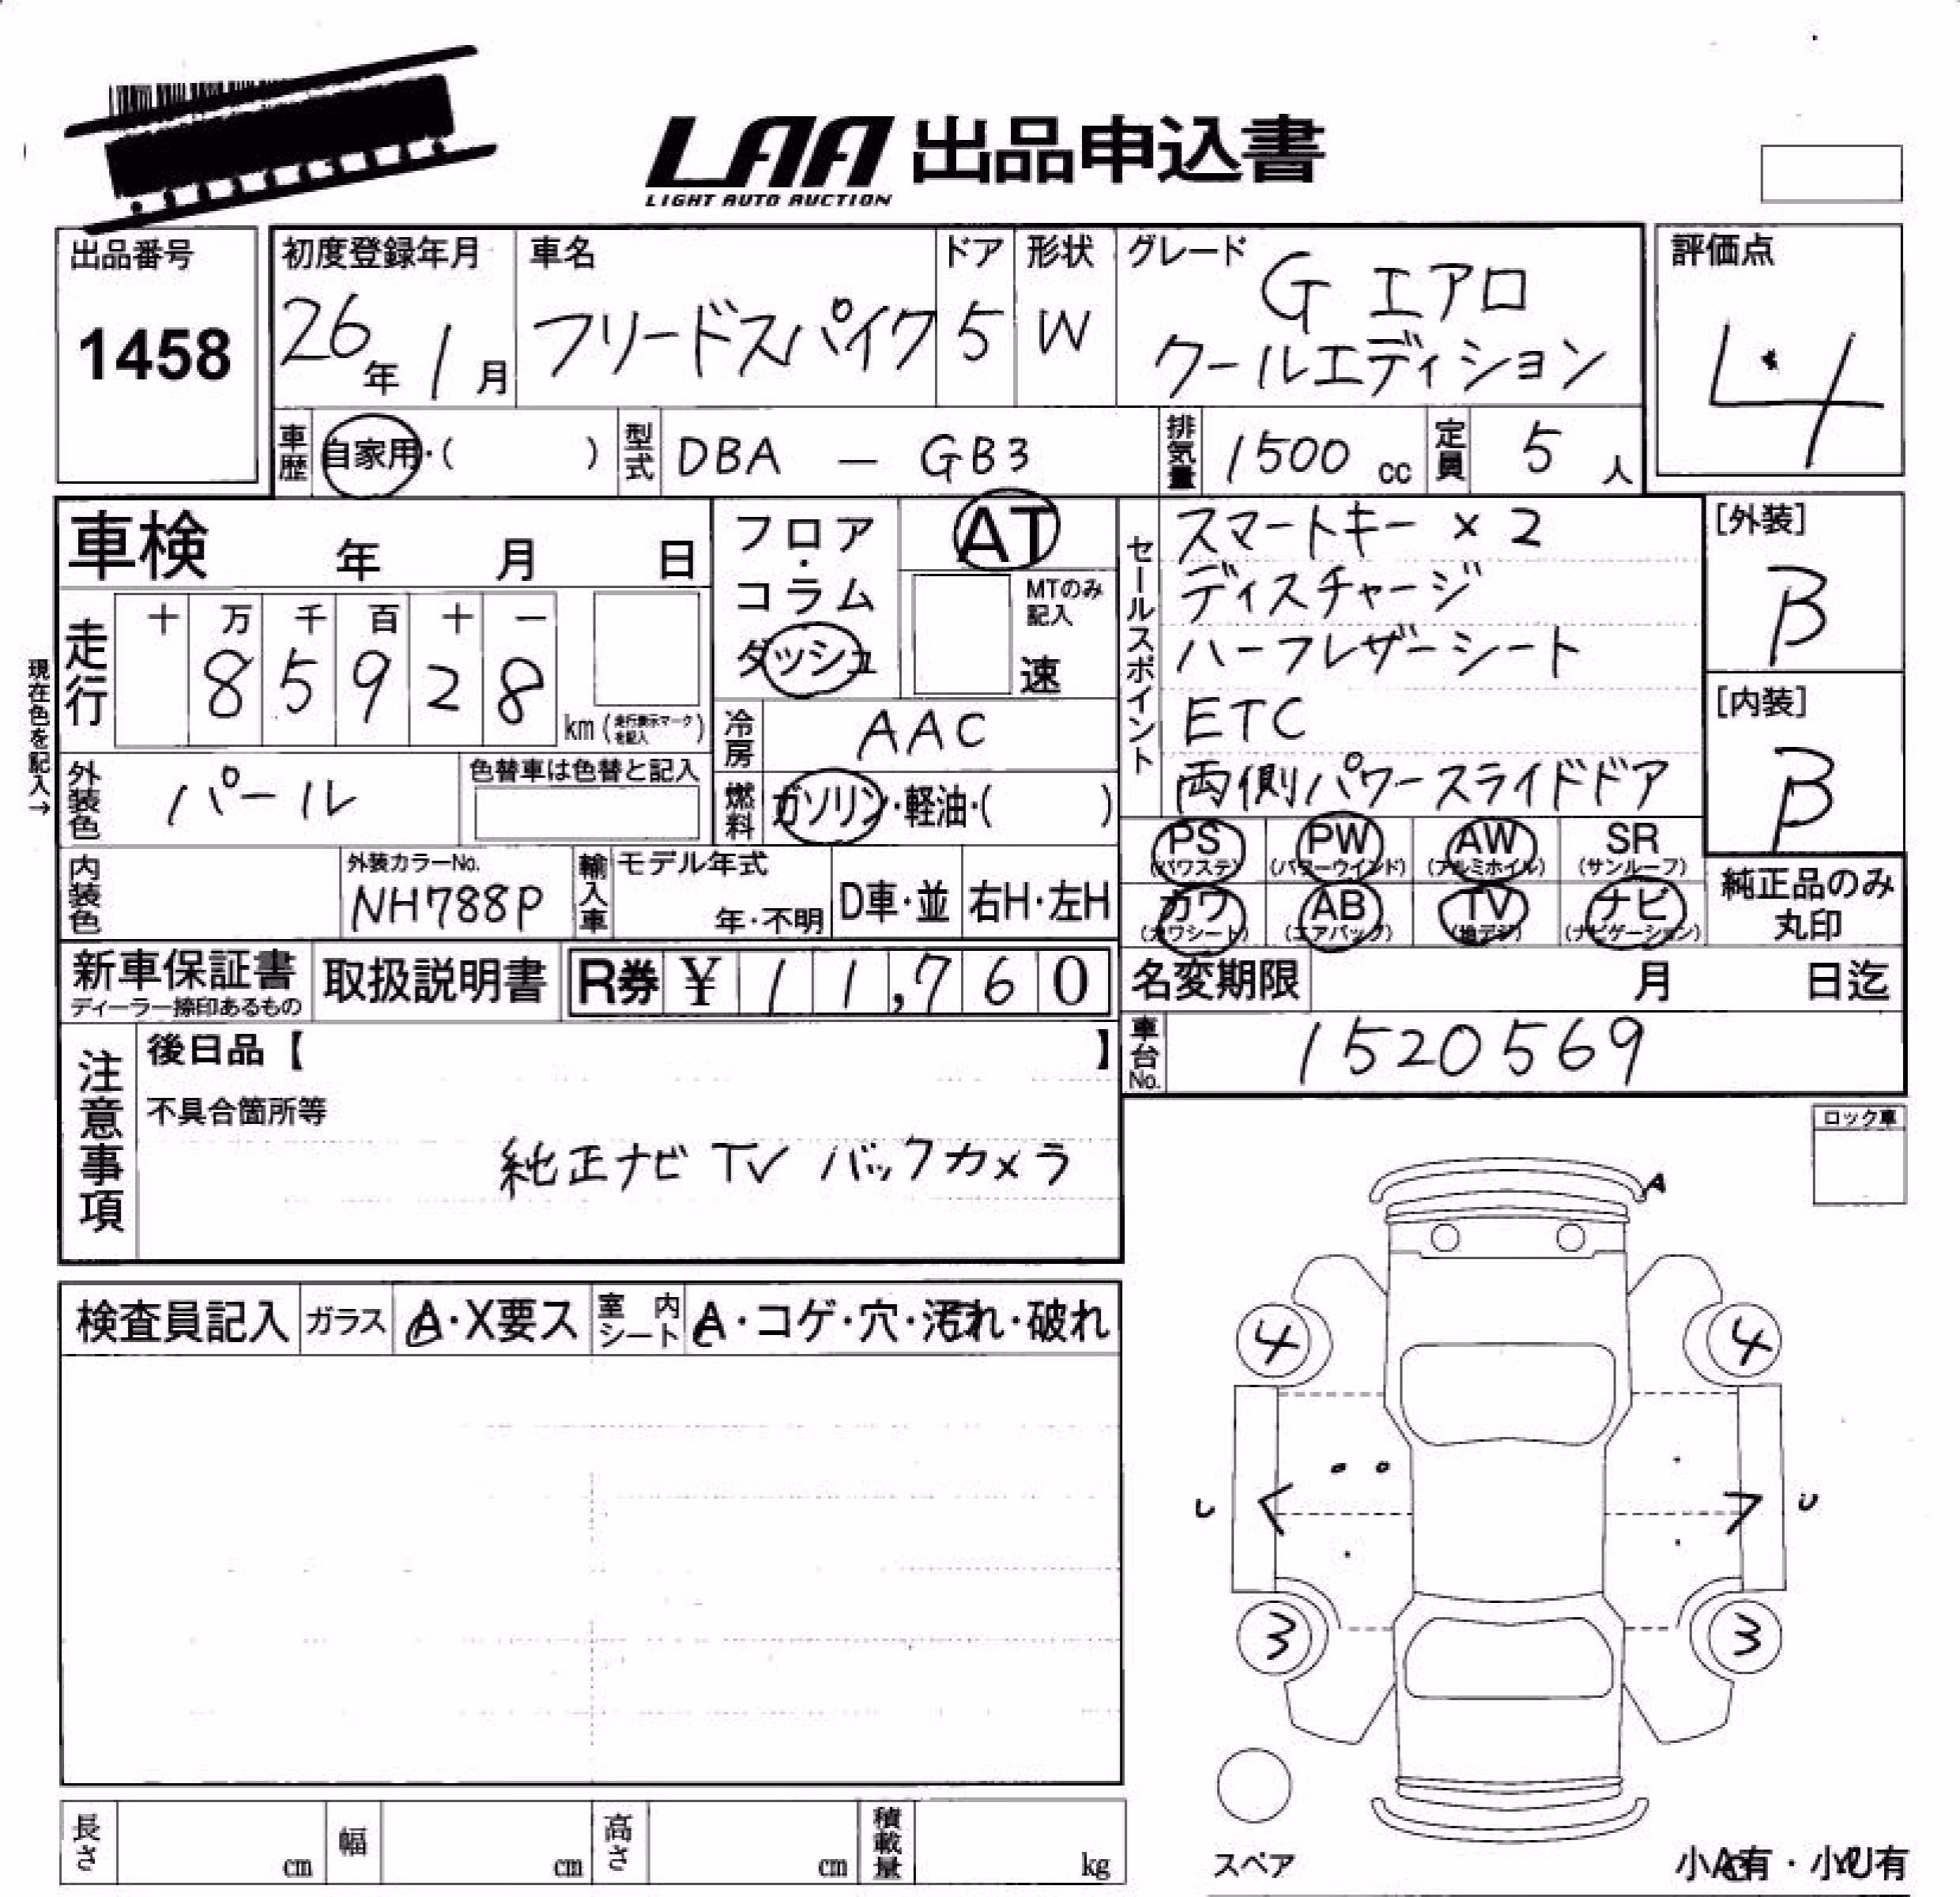 LAA 出品申込書
LIGHT AUTO AUCTION
出品番号
1458
初度登録年月
26年 1月
車名
フリードスパイク
ドア
5
形状
W
グレード
G エアロ
クールエディション
評価点
4
車歴
自家用・( )
型式
DBA - GB3
排気量
1500 cc
定員
5 人
車検 年 月 日
フロア・コラム
ダッシュ
AT
MTのみ記入
速
セールスポイント
スマートキー × 2
ディスチャージ
ハーフレザーシート
ETC
両側パワースライドドア
[外装]
B
[内装]
B
現在色を記入→
走行
十 万 千 百 十 一
8 5 9 2 8
km (走行表示マークを記入)
冷房
AAC
外装色
パール
色替車は色替と記入
燃料
ガソリン・軽油・( )
PS
(パワステ)
PW
(パワーウインド)
AW
(アルミホイル)
SR
(サンルーフ)
カワ
(カワシート)
AB
(エアバック)
TV
(地デジ)
ナビ
(ナビゲーション)
純正品のみ
丸印
内装色
外装カラーNo.
NH788P
輸入車
モデル年式
年・不明
D車・並
右H・左H
新車保証書
ディーラー捺印あるもの
取扱説明書
R券 ¥ 11,760
名変期限 月 日迄
車台No.
1520569
注意事項
後日品【 】
不具合箇所等
純正ナビ TV バックカメラ
ロック車
A
検査員記入
ガラス
A・X要ス
室内シート
A・コゲ・穴・汚れ・破れ
4 4
U
3 3
スペア
長さ cm
幅 cm
高さ cm
積載量 kg
小A有・小U有